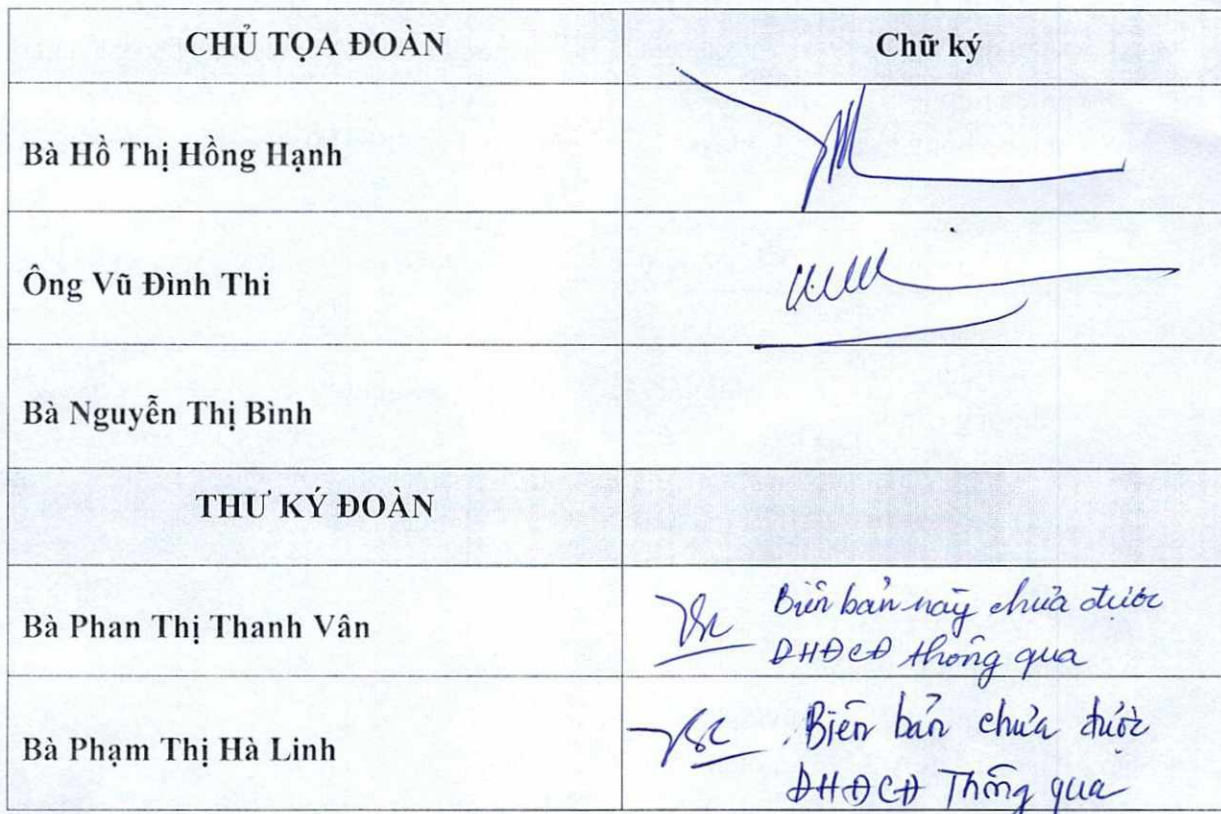 CHỦ TỌA ĐOÀN
Chữ ký
Bà Hồ Thị Hồng Hạnh
Ông Vũ Đình Thi
Bà Nguyễn Thị Bình
THƯ KÝ ĐOÀN
Bà Phan Thị Thanh Vân
Biên bản này chưa được
ĐHĐCĐ thông qua
Bà Phạm Thị Hà Linh
Biên bản chưa được
ĐHĐCĐ Thông qua